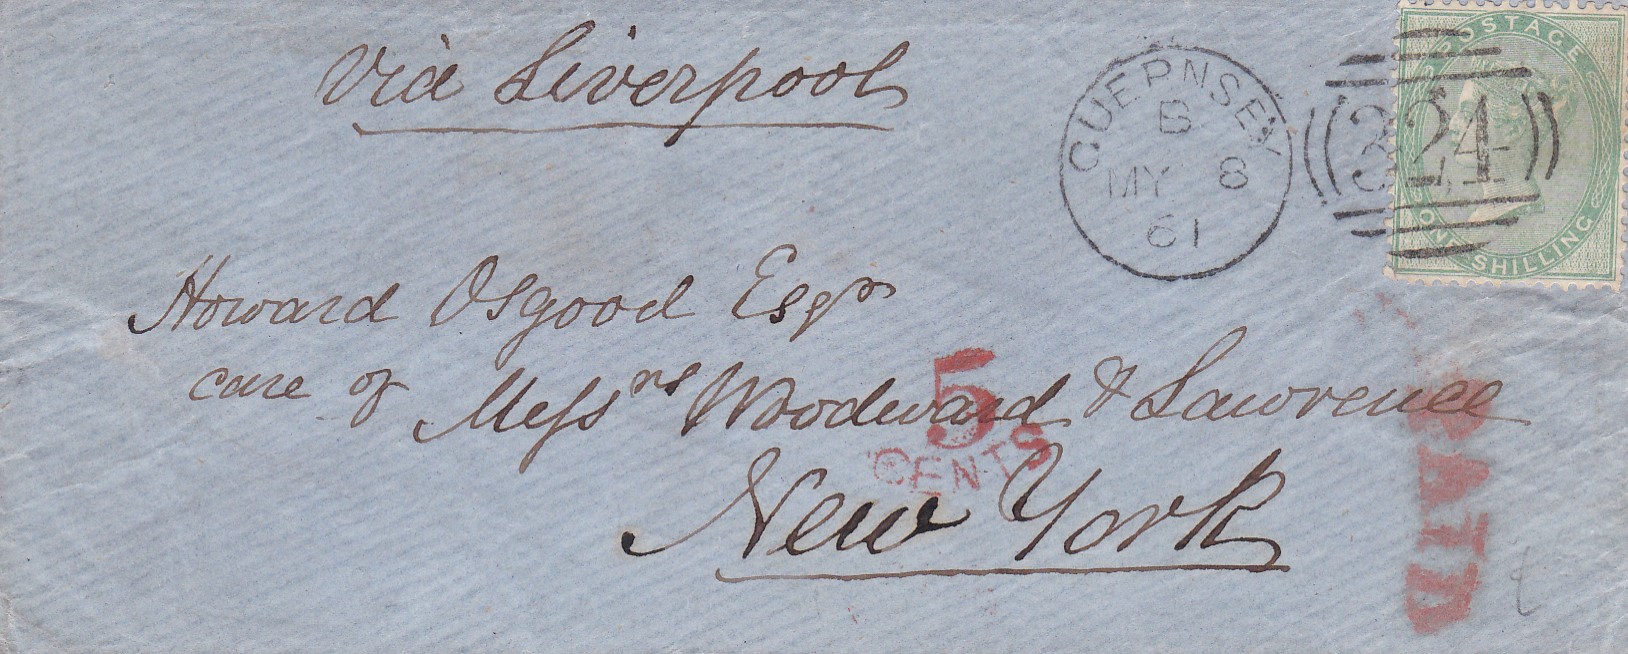 Via Liverpool
GUERNSEY
B
MY 8
61
324
POSTAGE
ONE SHILLING
Howard Osgood Esqr
care of Messrs Woodward & Lawrence
New York
5
CENTS
PAID
t